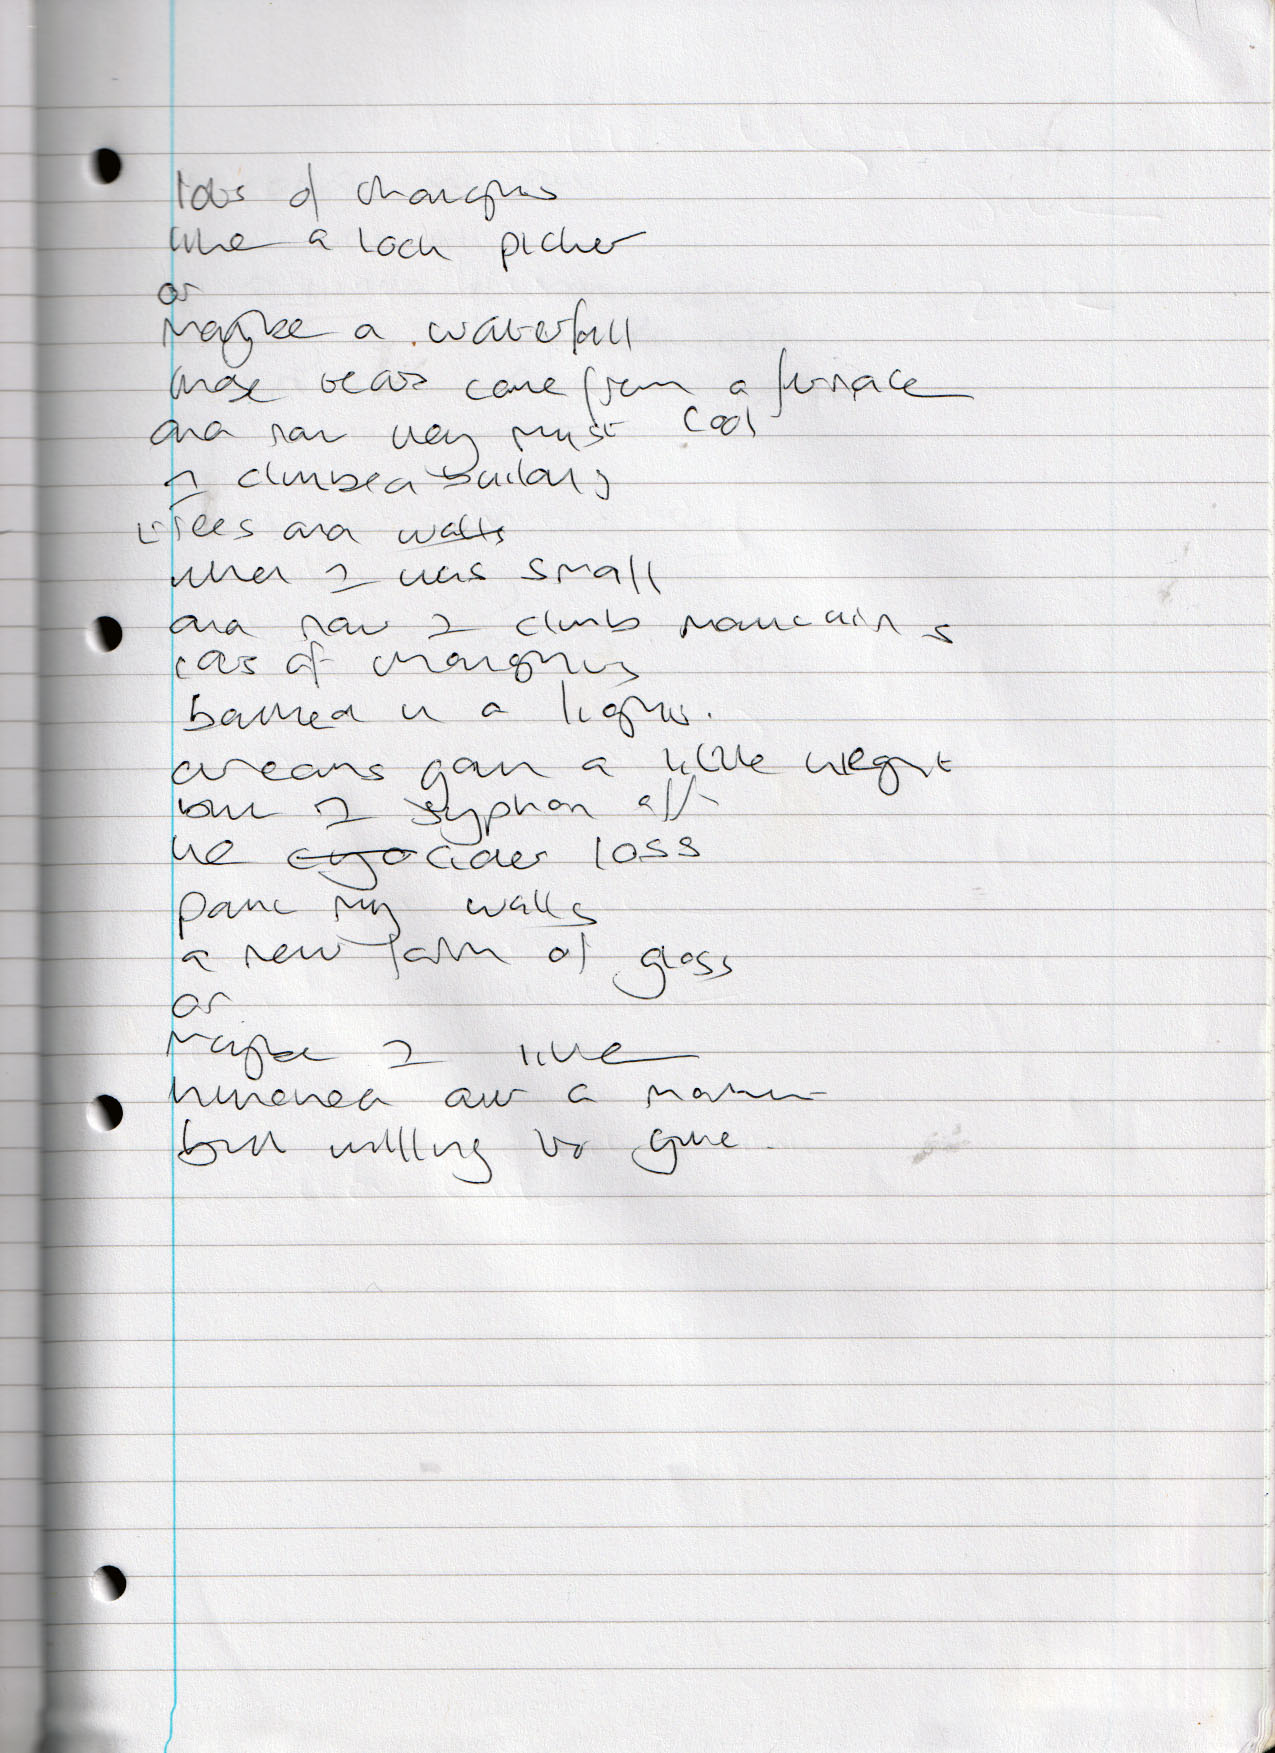 lots of thoughts
like a lock picker
or
maybe a waterfall
whose tears came from a furnace
and now they must cool
I climbed buildings
trees and walls
when I was small
and now I climb mountains
lots of thoughts
bathed in a light.
dreams gain a little weight
but I syphon off
the loss
paint my walls
a new form of gloss
or
maybe I like
a
but willing to give.